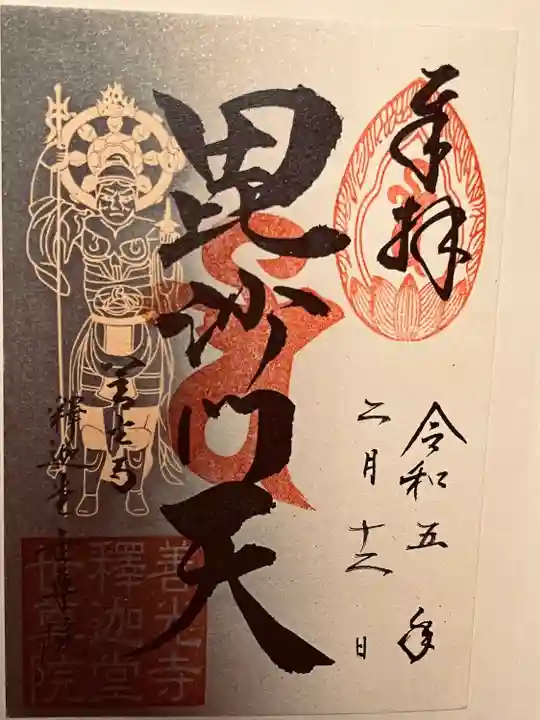 奉拝
令和五年
二月十二日
毘沙門天
善光寺
釋迦堂世尊院
善光寺
釋迦堂
世尊院